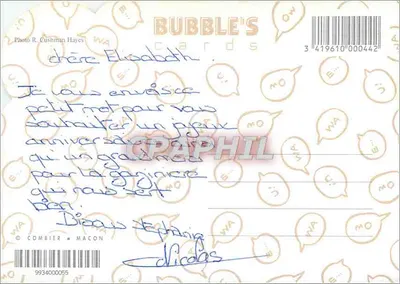 BUBBLE'S
cards
Photo R. Cushman Hayes
3 419610 000442
chère Elisabeth.
Je vous envoi ce
petit mot pour vous
souhaiter un joyeux
anniversaire ainsi
qu'un grand merci
pour la gazinière
qui nous sert
bien.
Bisous Stéphanie
Nicolas
CPAPHIL
© COMBIER - MACON
9934000055